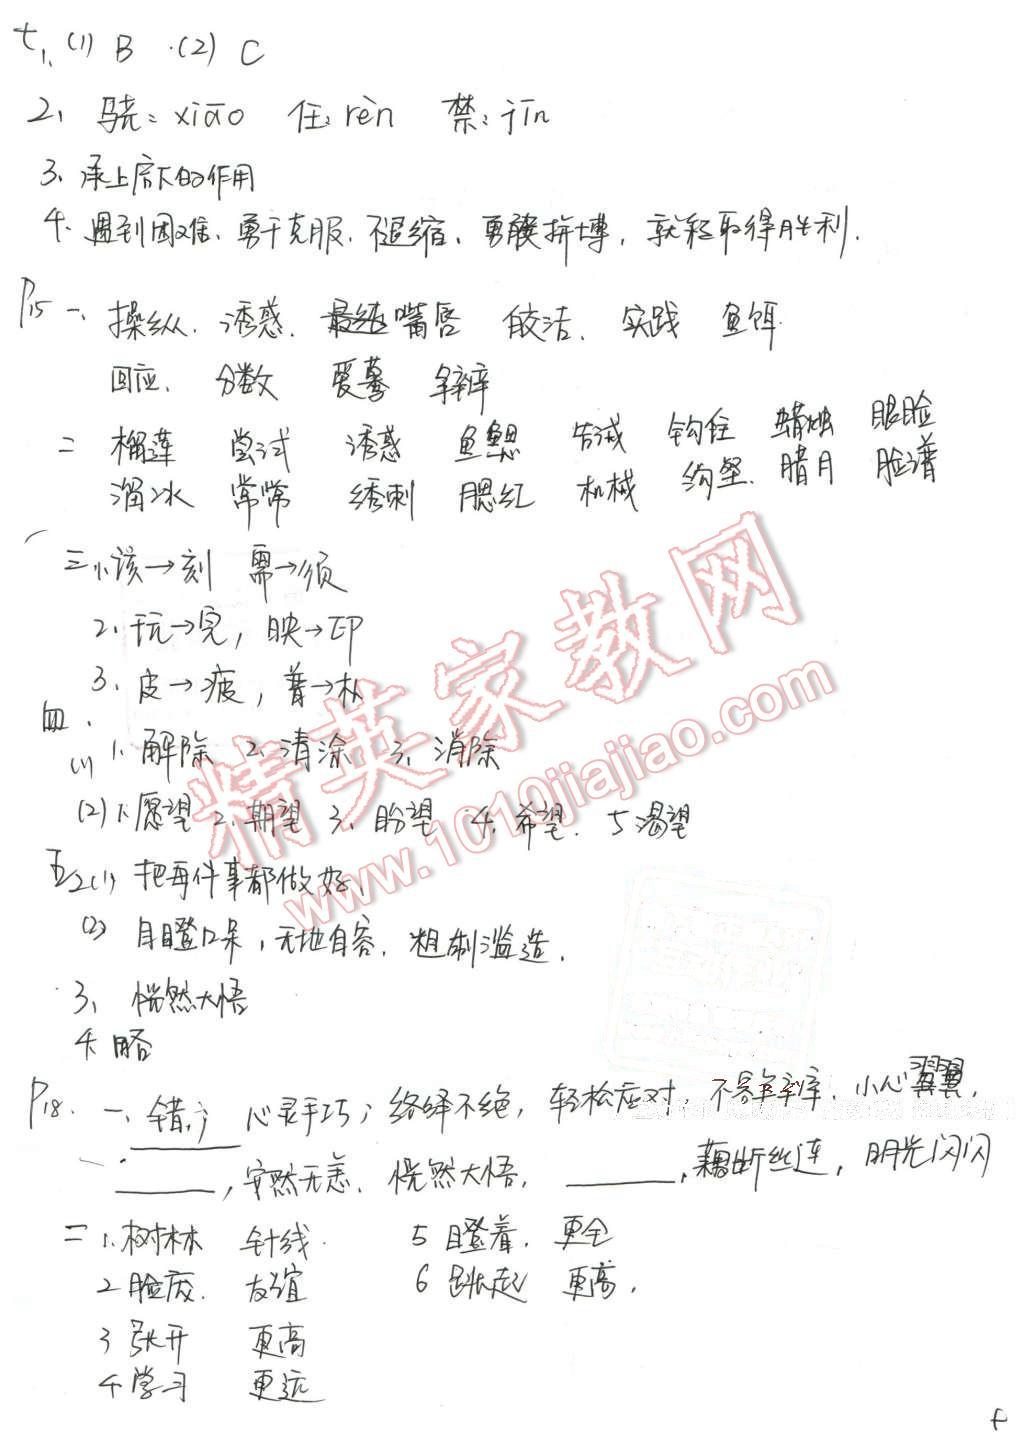 七、1、(1) B (2) C
2、骁:xiāo 任:rèn 禁:jīn
3、承上启下的作用
4、遇到困难、勇于克服、不退缩、勇于拼搏,就能取得胜利.
P15 一、操纵、诱惑、嘴唇 皎洁、实践 鱼饵
回应、分数 爱慕 争辩
二 榴莲 尝试 诱惑 鱼鳃 告诫 钩住 蜡烛 眼睑
溜冰 常常 绣刺 腮红 机械 沟壑、腊月 脸谱
三、1、该→刻 需→须
2、玩→完,映→印
3、皮→疲,普→朴
四、
(1) 1、解除 2、清除 3、消除
(2)1、愿望 2、期望 3、盼望 4、希望、5渴望
五2(1) 把每件事都做好.
(2) 目瞪口呆,无地自容、粗制滥造.
3、恍然大悟
4、略
P18、一、错; 心灵手巧;络绎不绝,轻松应对,不容 小心翼翼,
,安然无恙、恍然大悟, ,藕断丝连,明光闪闪
二 1、树林 针线、 5 瞪着, 更全
2 脸庞、 友谊 6 跳起 更高,
3 张开 更高
4 学习 更远
精英家教网
www.1010jiajiao.com